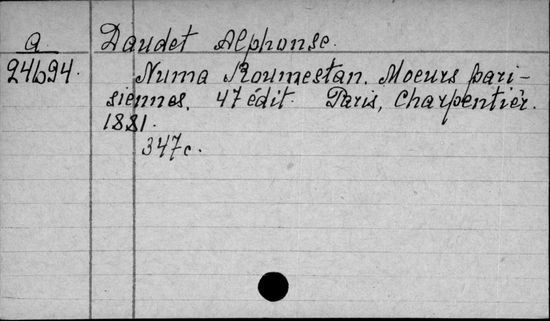 a Daudet Alphonse.
24694. Numa Roumestan. Moeurs pari-
siennes. 47 édit. Paris, Charpentier.
1881.
347c.